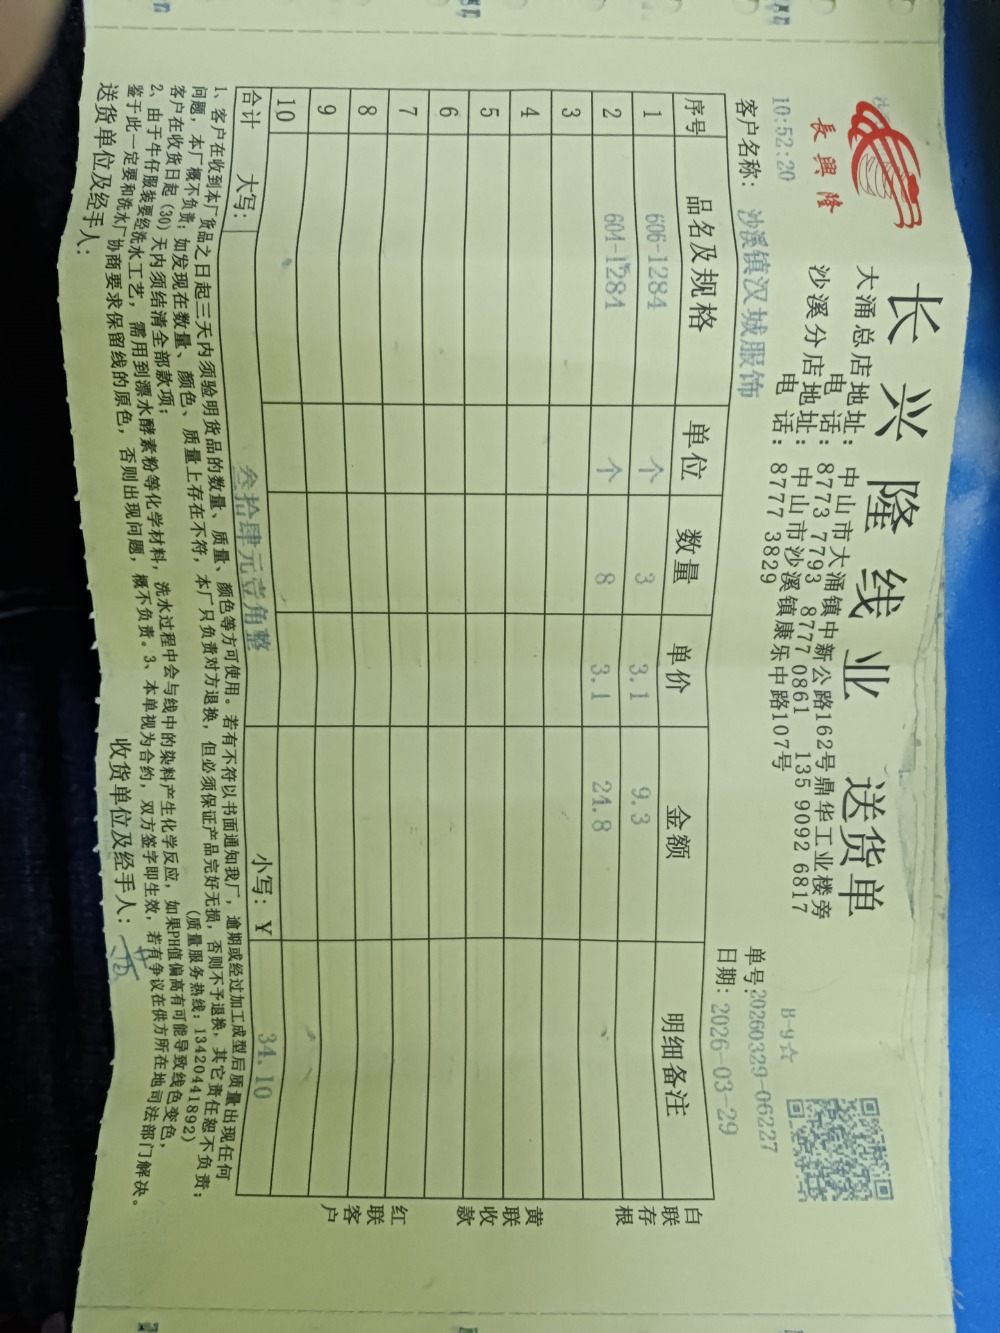 長興隆
长兴隆线业 送货单
大涌总店地址: 中山市大涌镇中新公路162号鼎华工业楼旁
电话: 8773 7793 8777 0861 135 9092 6817
沙溪分店地址: 中山市沙溪镇康乐中路107号
电话: 8777 3829
B-9☆
10:52:20
单号:20260329-06227
客户名称: 沙溪镇汉城服饰
日期: 2026-03-29
序号 品名及规格 单位 数量 单价 金额 明细备注
1 606-1284 个 3 3.1 9.3
2 604-1284 个 8 3.1 24.8
3
4
5
6
7
8
9
10
合计 大写: 叁拾肆元壹角整 小写: ¥ 34.10
白联存根
黄联收款
红联客户
1、客户在收到本厂货品之日起三天内须验明货品的数量、质量、颜色等方可使用。若有不符以书面通知我厂, 逾期或经过加工成型后质量出现任何
问题, 本厂概不负责; 如发现在数量、颜色、质量上存在不符, 本厂只负责对方退换, 但必须保证产品完好无损, 否则不予退换, 其它责任恕不负责;
客户在收货日起 (30) 天内须结清全部款项; (质量服务热线: 13420441892)
2、由于牛仔服装要经洗水工艺, 需用到漂水酵素粉等化学材料, 洗水过程中会与线中的染料产生化学反应, 如果PH值偏高有可能导致线色变色,
鉴于此一定要和洗水厂协商要求保留线的原色, 否则出现问题, 概不负责。3、本单视为合约, 双方签字即生效; 若有争议在供方所在地司法部门解决。
送货单位及经手人: 收货单位及经手人: